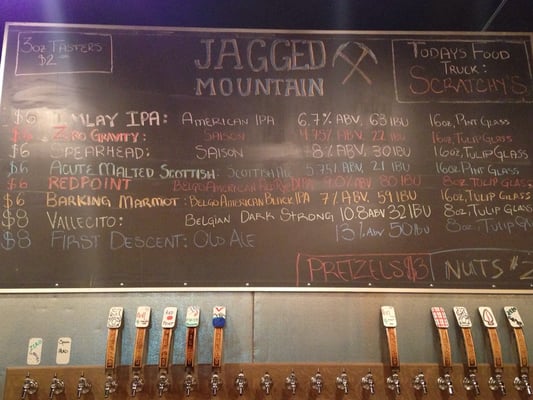 3oz TASTERS
$2.00
JAGGED
MOUNTAIN
TODAYS FOOD
TRUCK:
SCRATCHY'S
$6 IMLAY IPA: AMERICAN IPA 6.7% ABV, 63 IBU 16oz, PINT GLASS
ZERO GRAVITY: SAISON 4.75% ABV, 22 IBU 16oz, TULIP GLASS
$6 SPEARHEAD: SAISON 8% ABV, 30 IBU 16oz, TULIP GLASS
$6 ACUTE MALTED SCOTTISH: SCOTTISH ALE 5.75% ABV, 21 IBU 16oz, PINT GLASS
$6 REDPOINT BELGO AMERICAN 80 IBU 8oz, TULIP GLASS
$6 BARKING MARMOT: BELGO AMERICAN BLACK IPA 7% ABV, 54 IBU 16oz, TULIP GLASS
$8 VALLECITO: BELGIAN DARK STRONG 10.8 ABV 32 IBU 8oz, TULIP GLASS
$8 FIRST DESCENT: OLD ALE 13% ABV 50 IBU 8oz, TULIP GLASS
PRETZELS $3 NUTS $2